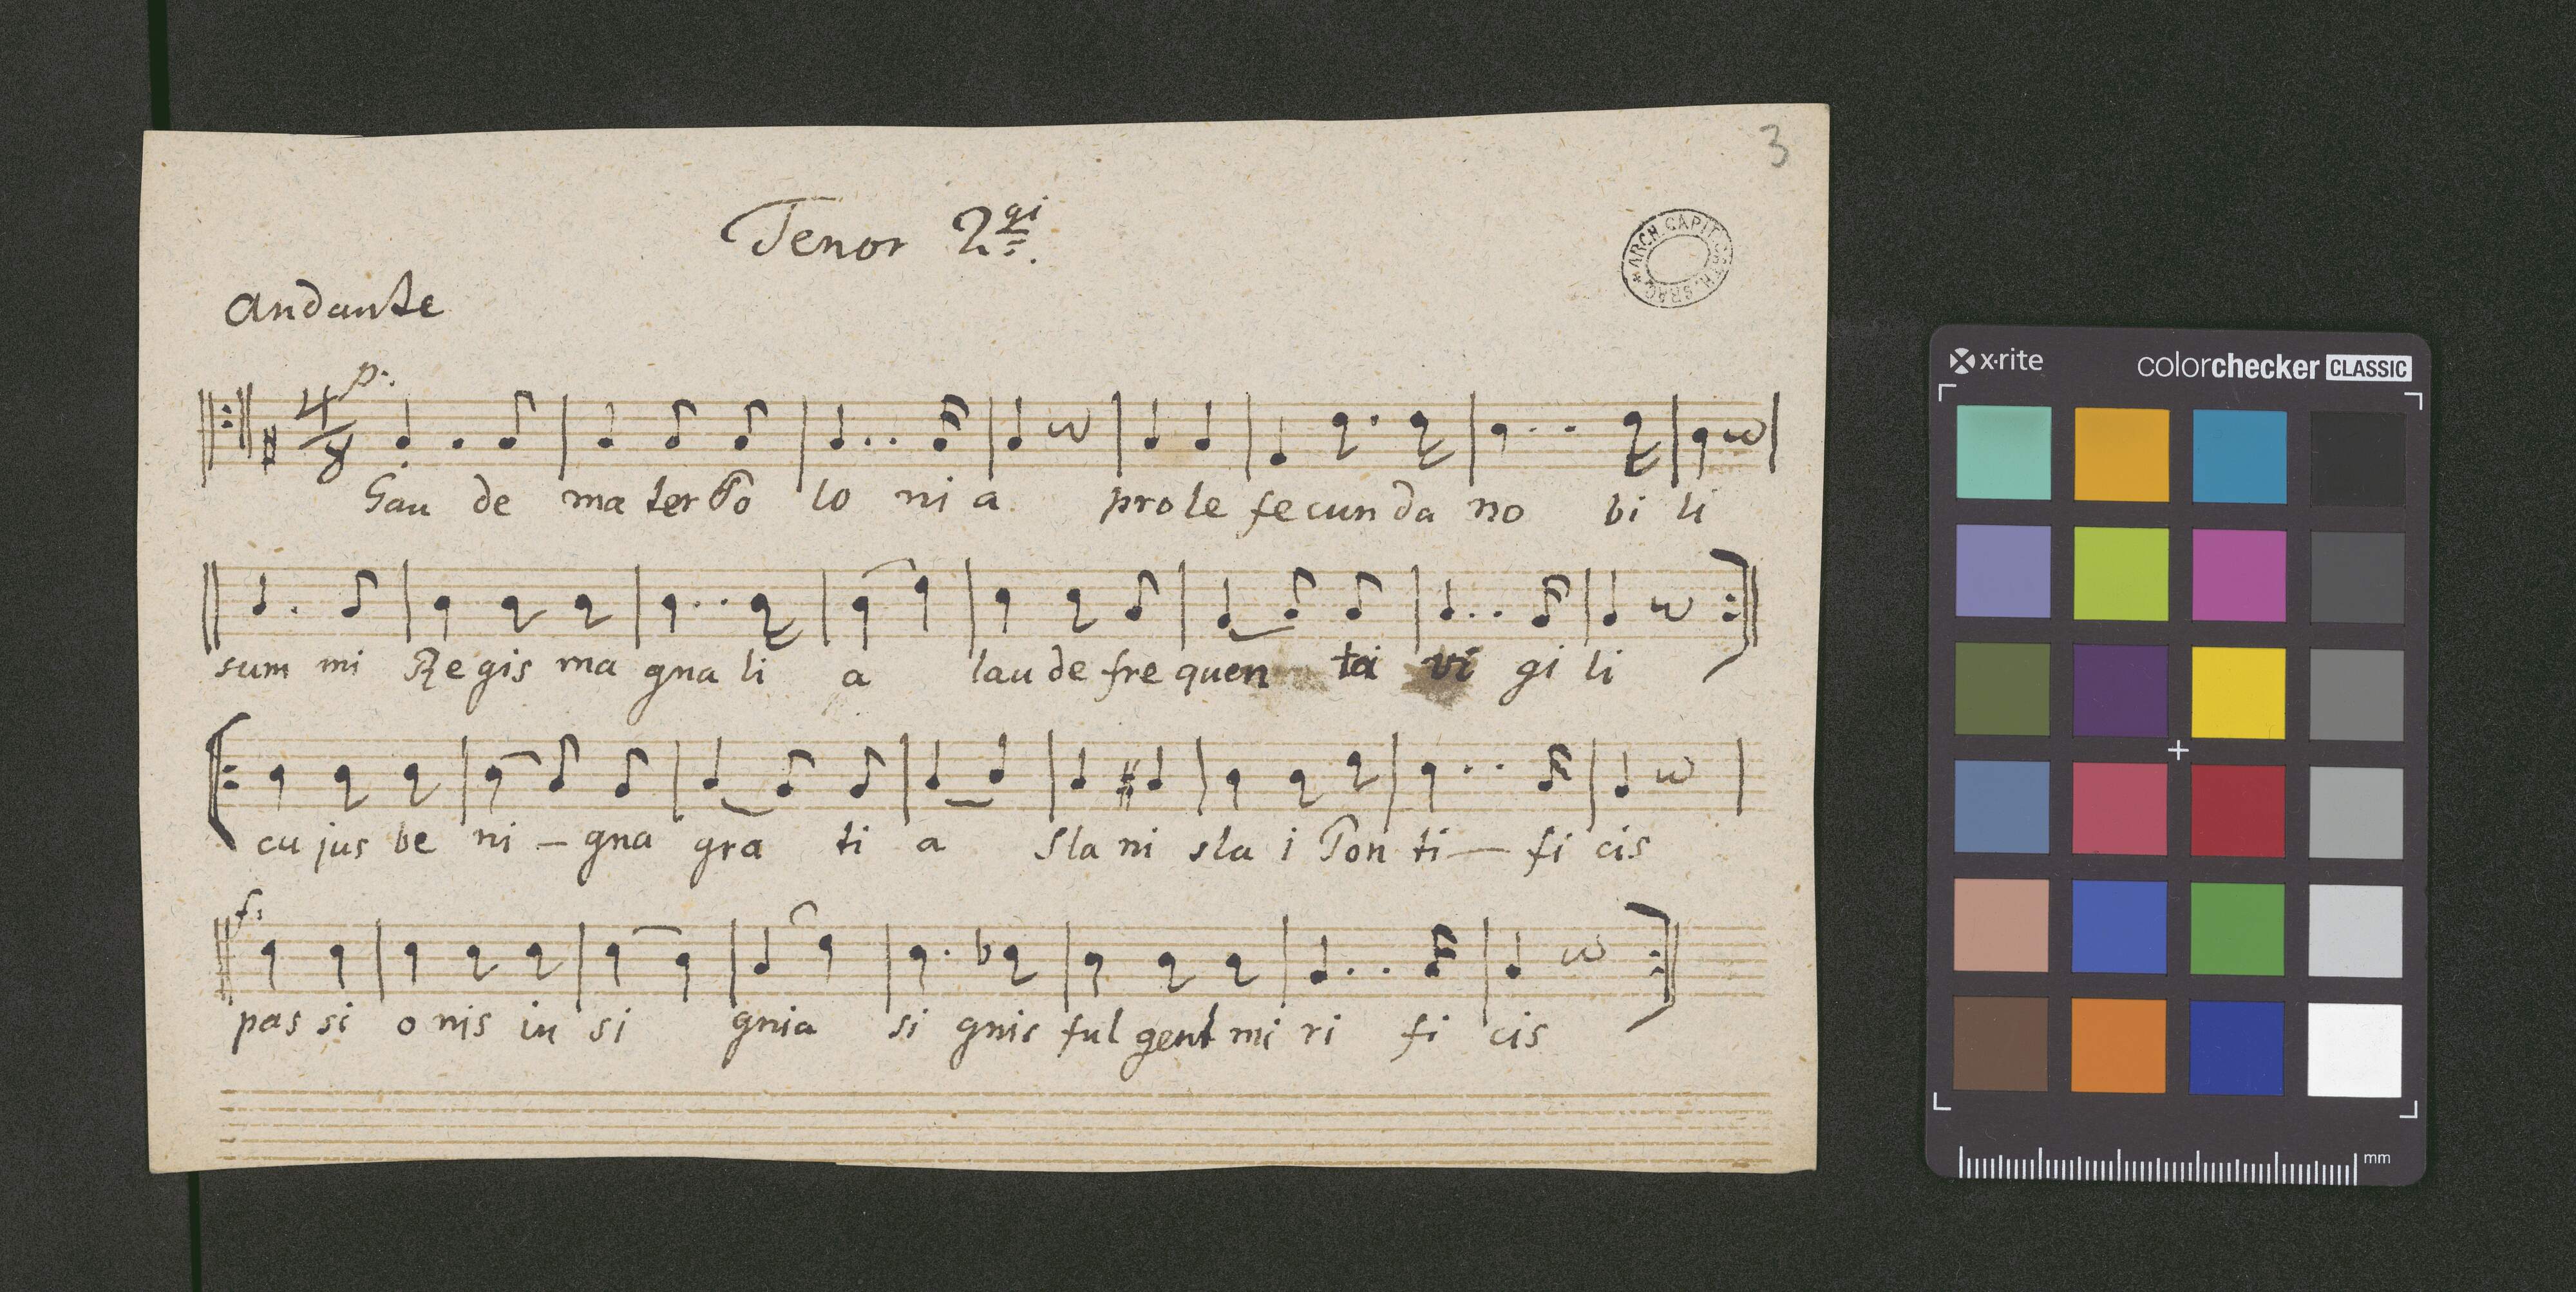 3
Tenor 2gi
ARCH. CAPIT. CATH. CRAC
Andante
p:
4/8
Gau de ma ter Po lo ni a prole fecunda no bi li
sum mi Regis ma gna li a laude frequen ta vi gi li
cujus be ni - gna gra ti a Sla ni sla i Pon ti - fi cis
f:
passi o nis in si gnia si gnis ful gent mi ri fi cis
x·rite
colorchecker CLASSIC
mm